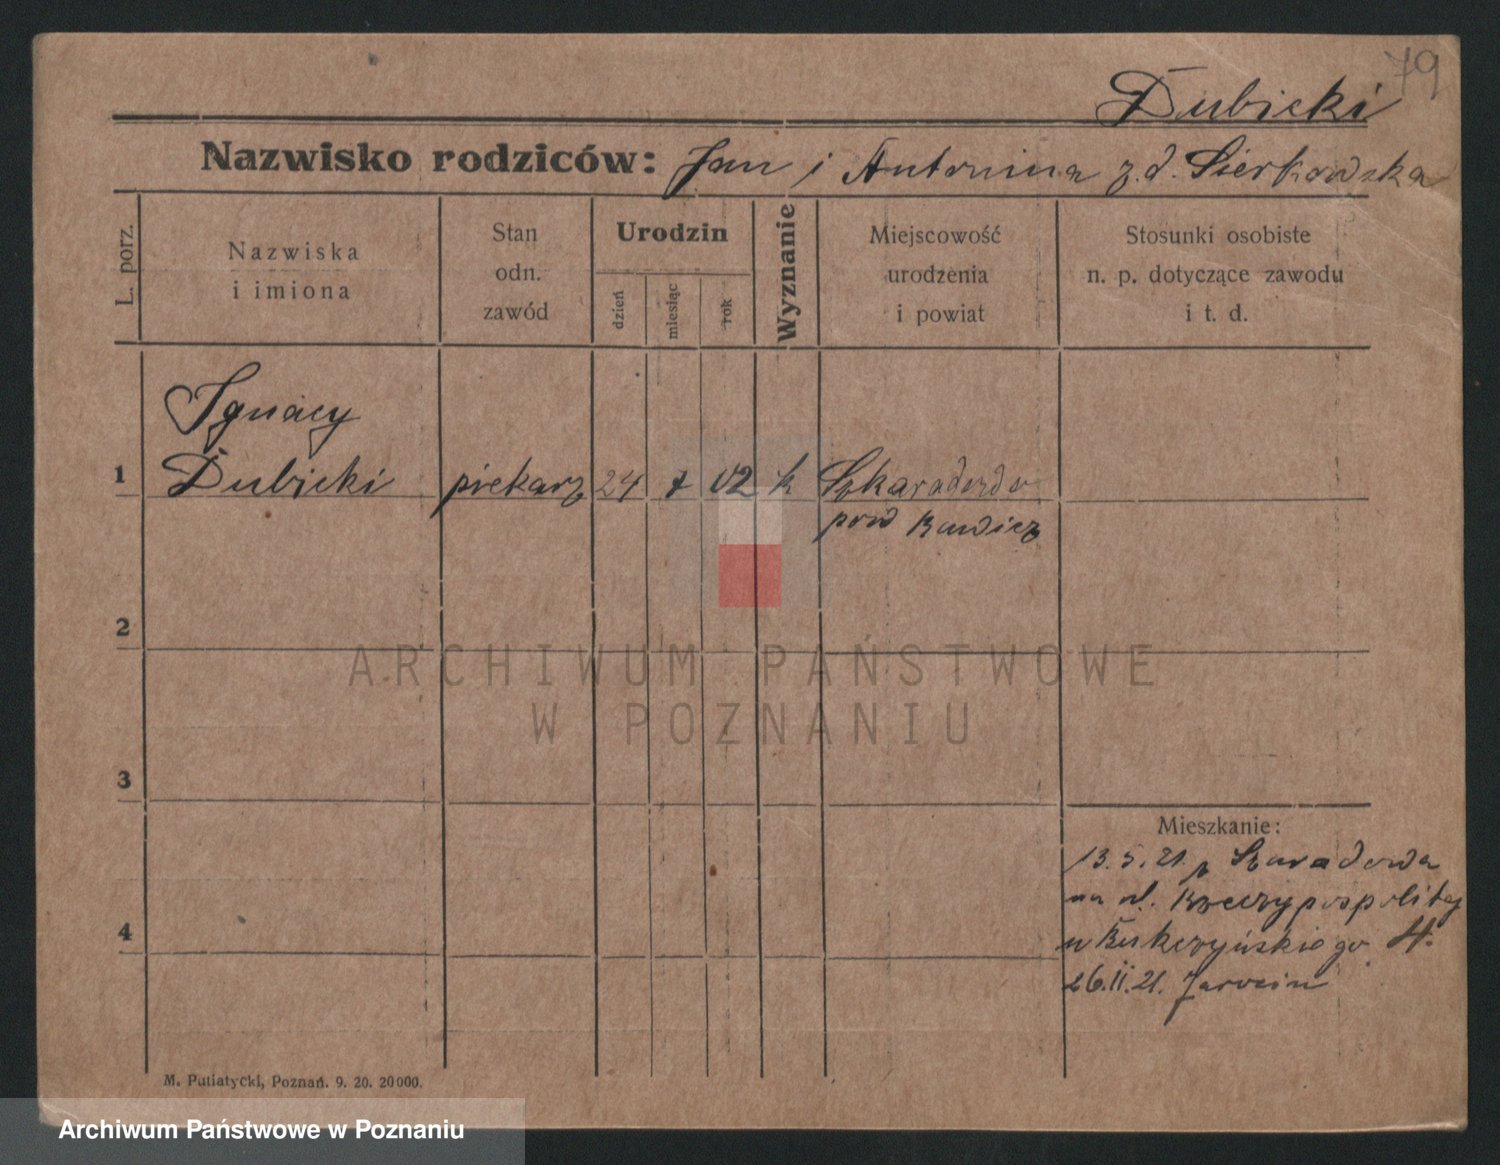 79
Dubicki
Nazwisko rodziców: Jan i Antonina z.d. Sierkowska
L. porz.
Nazwiska
i imiona
Stan
odn.
zawód
Urodzin
dzień
miesiąc
rok
Wyznanie
Miejscowość
urodzenia
i powiat
Stosunki osobiste
n. p. dotyczące zawodu
i t. d.
Ignacy
1 Dubicki piekarz 24 7 02 k
pow Rawicz
2
ARCHIWUM PAŃSTWOWE
W POZNANIU
3
Mieszkanie:
13.5.21. z
na ul. Rzeczypospolitej
4 u 4.
26.II.21. Jarocin
M. Putiatycki, Poznań. 9. 20. 20000.
Archiwum Państwowe w Poznaniu